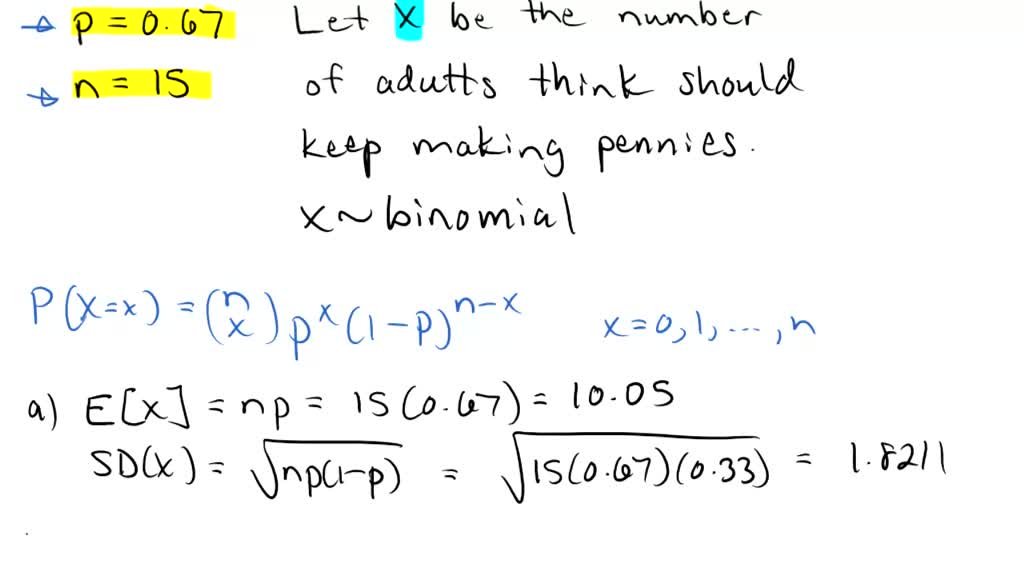 → p = 0.67 Let X be the number
→ n = 15 of adutts think should
keep making pennies.
X ~ binomial
P(X=x) = (n x) p^x (1-p)^{n-x} x = 0, 1, ..., n
a) E[X] = np = 15(0.67) = 10.05
SD(X) = √np(1-p) = √15(0.67)(0.33) = 1.8211